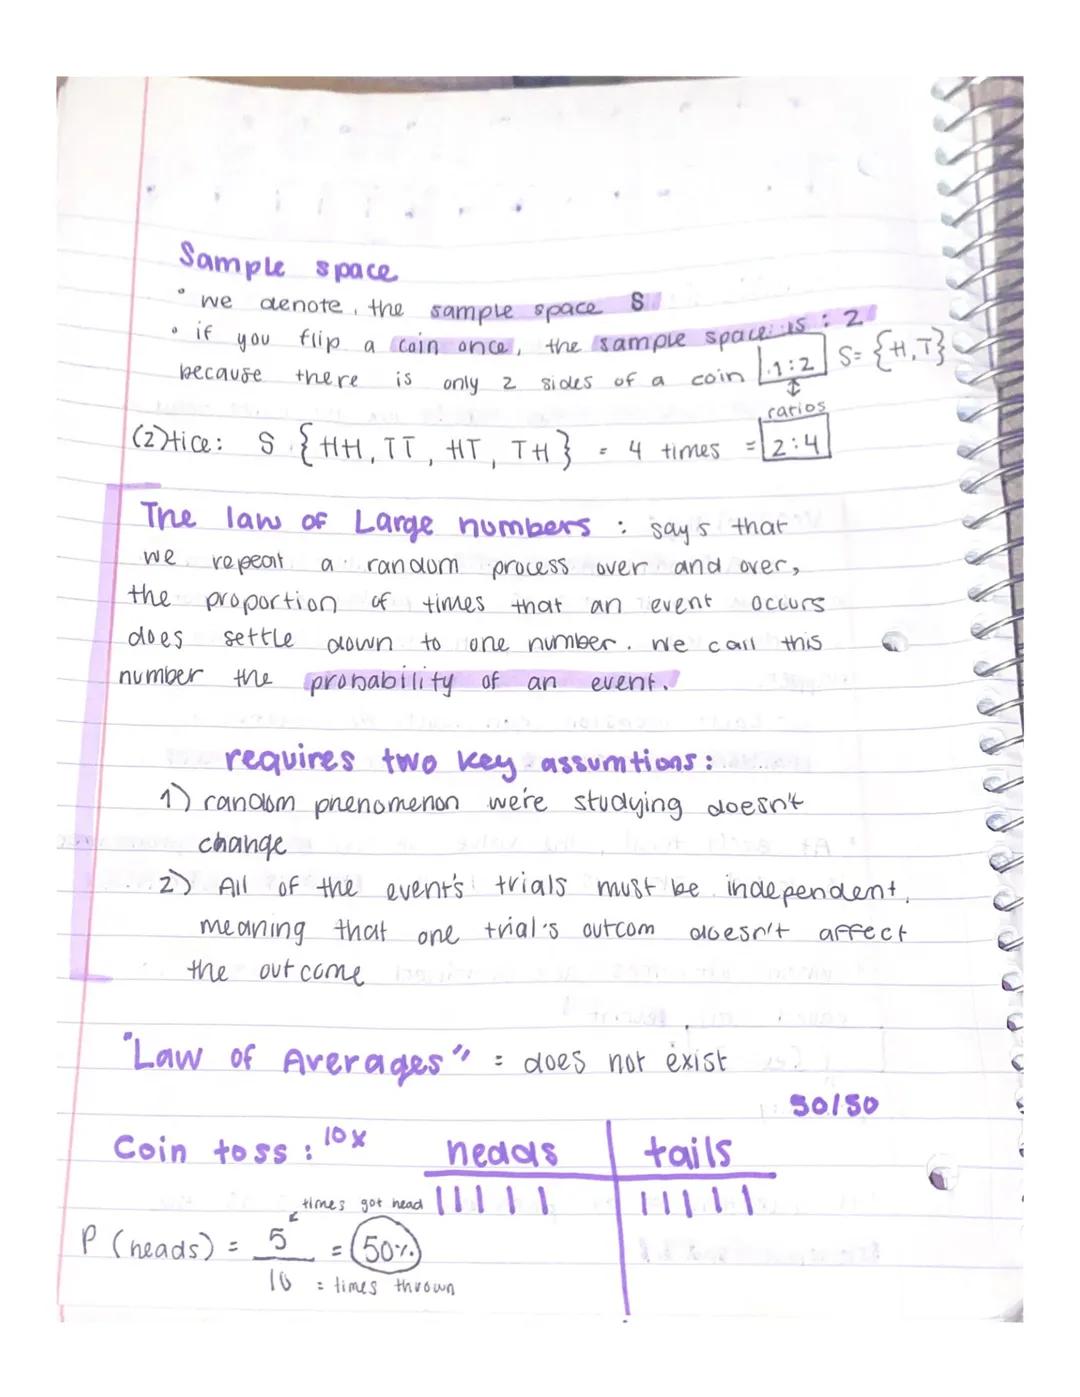 Sample space
• we denote the sample space S
• if you flip a coin once, the sample space is : 2
because there is only 2 sides of a coin 1:2 S= {H,T}
ratios
(2)tice: S {HH, TT, HT, TH} = 4 times = 2:4
The law of Large numbers : say's that
we repeat a random process over and over,
the proportion of times that an event occurs
does settle down to one number. we call this
number the probability of an event.
requires two key assumtions:
1) random phenomenon we're studying doesn't
change
2) All of the event's trials must be independent,
meaning that one trial's outcom doesn't affect
the outcome
"Law of Averages" = does not exist
50/50
Coin toss : 10x heads tails
times got head | | | | | | | | | |
P (heads) = 5 = 50%
10 = times thrown